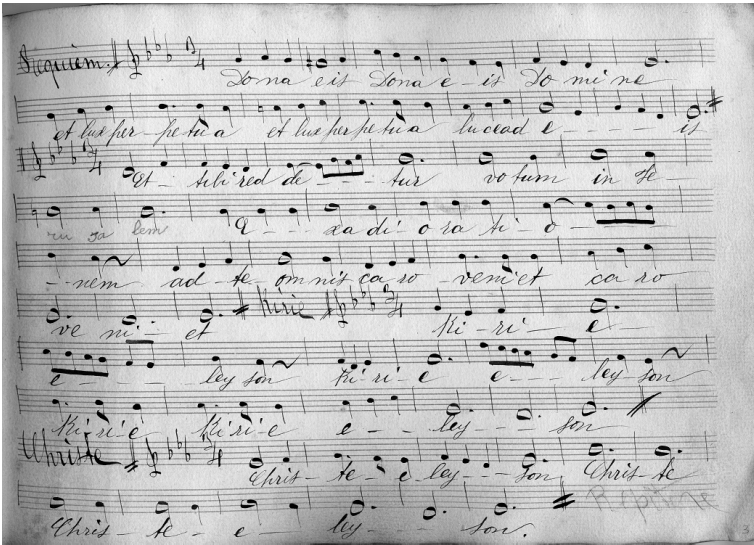 Requiem. 3/4
Dona eis Dona e-is Do mi ne
et lux per-petu a et lux per petu a lucead e - - - - is
3/4 Et - tibi red de - - - tur votum in Je-
ru sa lem E - - - xa di-o ra ti-o - - -
- - nem ad-te-om nis ca-ro - veni et ca ro
ve ni - et Kirie 3/4 Ki-ri - e-
e - - - - ley son Ki-ri-e e - - - ley-son
Ki-ri-e Ki-ri-e e - - ley - - son
Christe 3/4 Chris-te-e ley - - son Chris-te
Chris - te - e - ley - - - son. Répitine
3